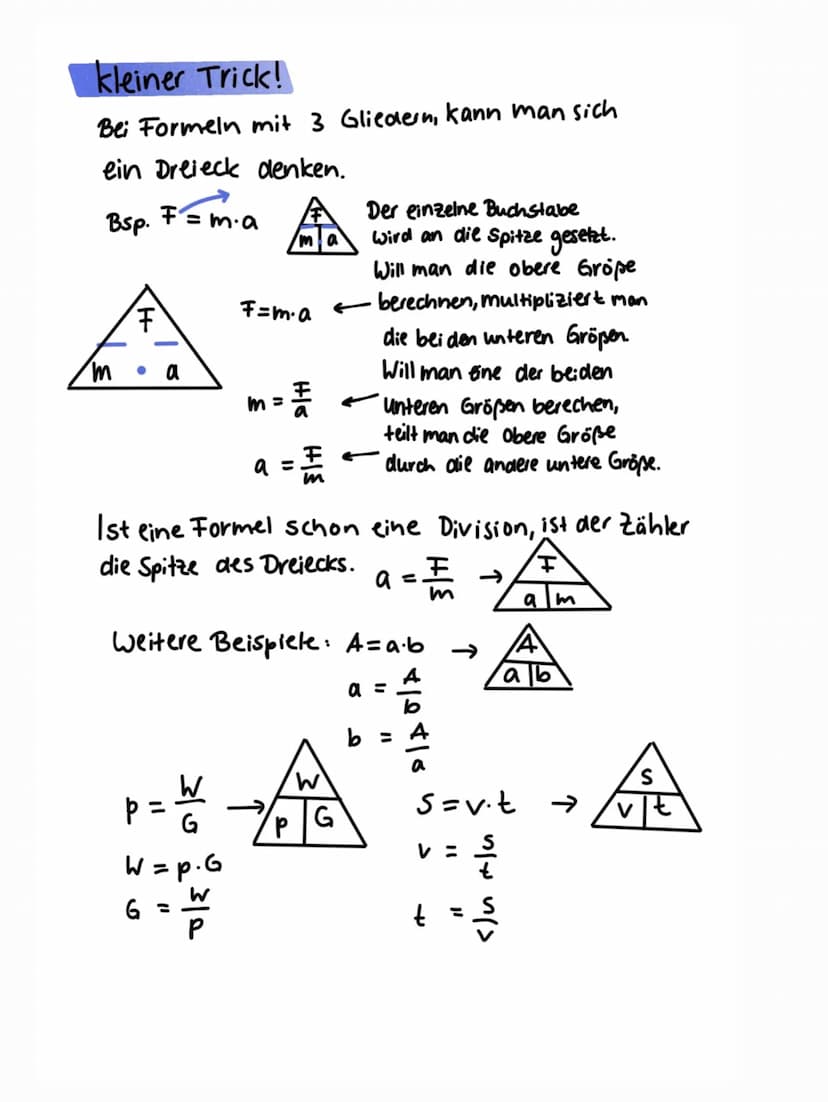 kleiner Trick!
Bei Formeln mit 3 Gliedern, kann man sich
ein Dreieck denken.
Bsp. F = m·a
F
m a
Der einzelne Buchstabe
wird an die Spitze gesetzt.
Will man die obere Größe
F=m·a ← berechnen, multipliziert man
die beiden unteren Größen
F
m · a
Will man eine der beiden
m = F/a ← unteren Größen berechen,
teilt man die obere Größe
a = F/m ← durch die andere untere Größe.
Ist eine Formel schon eine Division, ist der Zähler
die Spitze des Dreiecks. a = F/m →
F
a m
Weitere Beispiele: A=a·b →
A
a b
a = A/b
b = A/a
p = W/G →
W
p G
W = p·G
G = W/p
S=v·t →
S
v t
v = S/t
t = S/v